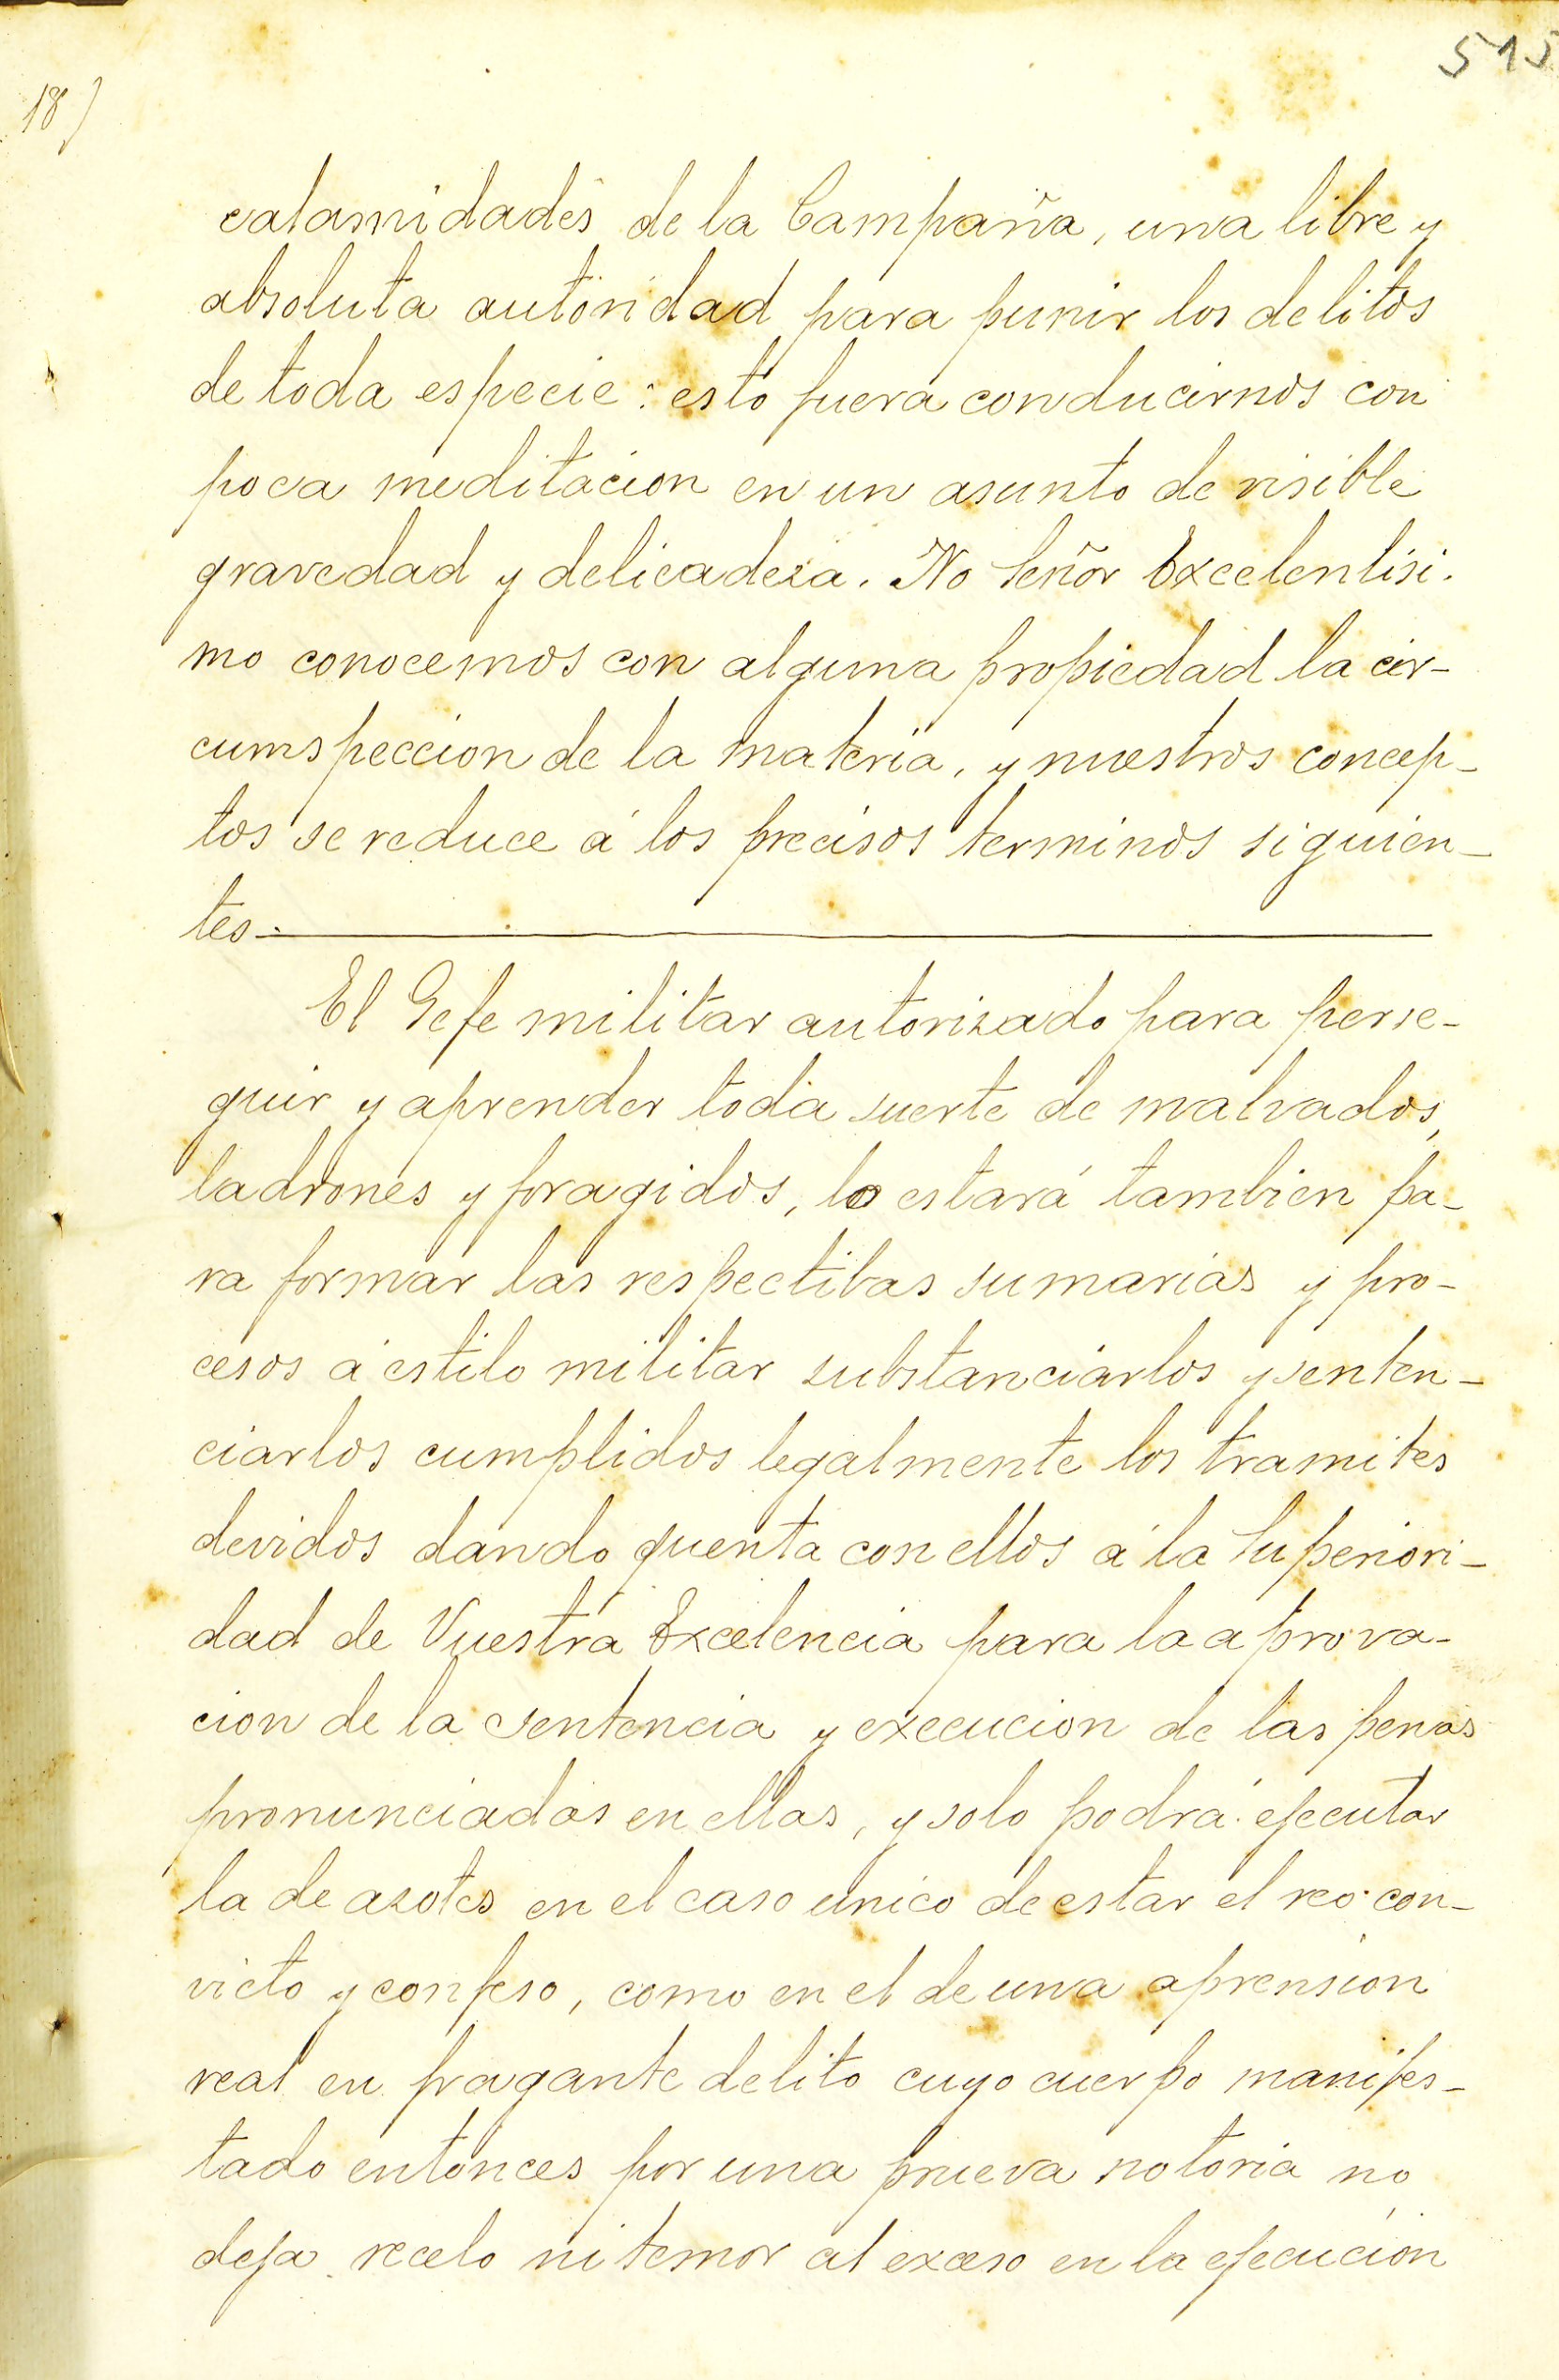 515
18)
calamidades de la Campaña, una libre y
absoluta autoridad para punir los delitos
de toda especie: esto fuera conducirnos con
poca meditacion en un asunto de visible
gravedad y delicadeza. No Señor Excelentisi-
mo conocemos con alguna propiedad la cir-
cumspeccion de la materia, y nuestros concep-
tos se reduce á los precisos terminos siguien-
tes.
El Gefe militar autorizado para perse-
guir y aprender toda suerte de malvados,
ladrones y foragidos, lo estará tambien pa-
ra formar las respectibas sumarias y pro-
cesos á estilo militar substanciarlos y senten-
ciarlos cumplidos legalmente los tramites
devidos dando quenta con ellos á la Superiori-
dad de Vuestra Excelencia para la aprova-
cion de la sentencia y execucion de las penas
pronunciadas en ellas, y solo podrá ejecutar
la de azotes en el caso unico de estar el reo con-
victo y confeso, como en el de una aprension
real en fragante delito cuyo cuerpo manifes-
tado entonces por una prueva notoria no
deja recelo ni temor al exceso en la ejecucion